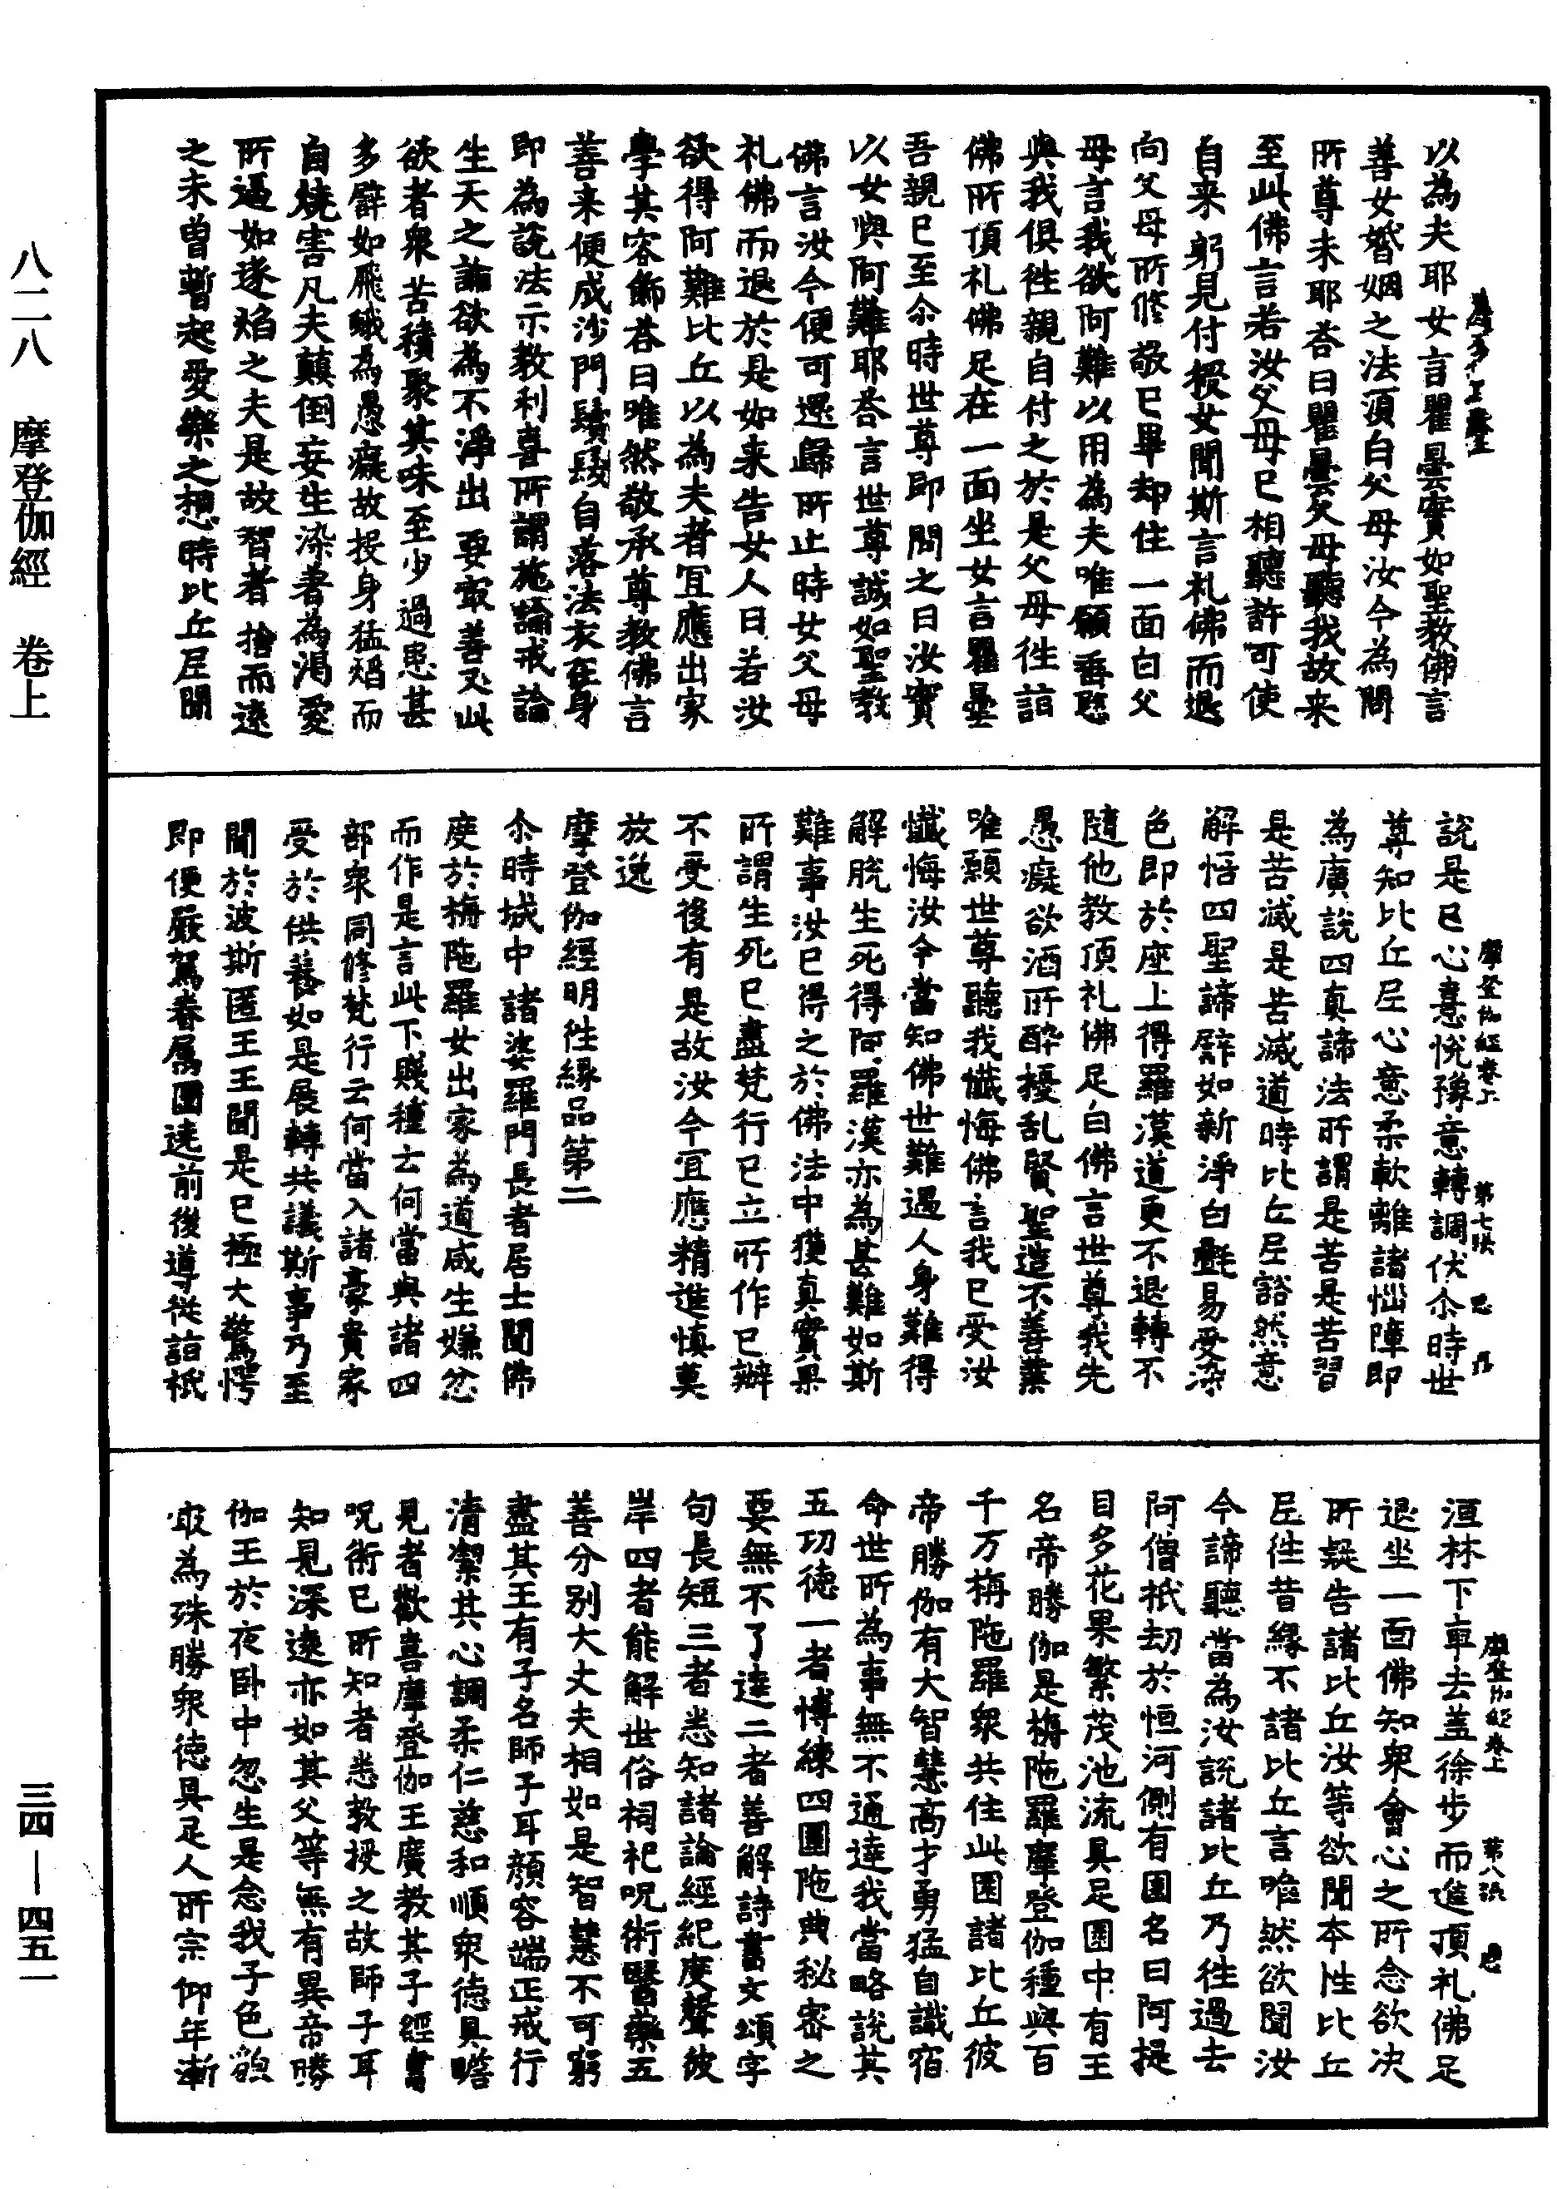 八二八　摩登伽經　卷上
三四—四五一
以為夫耶女言瞿曇實如聖教佛言
善女婚姻之法須白父母汝今為問
所尊未耶荅曰瞿曇父母聽我故来
至此佛言若汝父母已相聽許可使
自来躬見付授女聞斯言礼佛而退
向父母所修敬已畢却住一面白父
母言我欲阿難以用為夫唯願垂愍
與我俱徃親自付之於是父母徃詣
佛所頂礼佛足在一面坐女言瞿曇
吾親已至尒時世尊即問之曰汝實
以女與阿難耶荅言世尊誠如聖教
佛言汝今便可還歸所止時女父母
礼佛而退於是如来告女人曰若汝
欲得阿難比丘以為夫者宜應出家
學其容飾荅曰唯然敬承尊教佛言
善来便成沙門鬚髮自落法衣在身
即為說法示教利喜所謂施論戒論
生天之論欲為不淨出要寂善又此
欲者衆苦積聚其味至少過患甚
多譬如飛蛾為愚癡故投身猛焰而
自燒害凡夫顛倒妄生染著為渴愛
所逼如逐焰之夫是故智者捨而遠
之未曾暫起愛樂之想時比丘尼聞
摩登伽經卷上　第七張　思
說是已心意悅豫意轉調伏尒時世
尊知比丘尼心意柔軟離諸惱障即
為廣說四真諦法所謂是苦是苦習
是苦滅是苦滅道時比丘尼豁然意
解悟四聖諦譬如新淨白㲲易受染
色即於座上得羅漢道更不退轉不
隨他教頂礼佛足白佛言世尊我先
愚癡欲酒所醉擾乱賢聖造不善業
唯願世尊聽我懺悔佛言我已受汝
懺悔汝今當知佛世難遇人身難得
解脫生死得阿羅漢亦為甚難如斯
難事汝已得之於佛法中獲真實果
所謂生死已盡梵行已立所作已辦
不受後有是故汝今宜應精進慎莫
放逸
摩登伽經明徃緣品第二
尒時城中諸婆羅門長者居士聞佛
度於栴陁羅女出家為道咸生嫌忿
而作是言此下賤種云何當與諸四
部衆同修梵行云何當入諸豪貴家
受於供養如是展轉共議斯事乃至
聞於波斯匿王王聞是已極大驚愕
即便嚴駕眷属圍遶前後導從詣祇
摩登伽經卷上　第八張　思
洹林下車去盖徐步而進頂礼佛足
退坐一面佛知衆會心之所念欲决
所疑告諸比丘汝等欲聞本性比丘
尼徃昔緣不諸比丘言唯然欲聞汝
今諦聽當為汝說諸比丘乃徃過去
阿僧祇劫於恒河側有園名曰阿提
目多花果繁茂池流具足園中有王
名帝勝伽是栴陁羅摩登伽種與百
千万栴陁羅衆共住此園諸比丘彼
帝勝伽有大智慧高才勇猛自識宿
命世所為事無不通達我當略說其
五功德一者博練四圍陁典秘密之
要無不了達二者善解詩書文頌字
句長短三者悉知諸論經紀度聲彼
岸四者能解世俗祠祀呪術醫藥五
善分別大丈夫相如是智慧不可窮
盡其王有子名師子耳顏容端正戒行
清潔其心調柔仁慈和順衆德具瞻
見者歡喜摩登伽王廣教其子經書
呪術已所知者悉教授之故師子耳
知見深遠亦如其父等無有異帝勝
伽王於夜卧中忽生是念我子色貌
㝡為殊勝衆德具足人所宗仰年漸